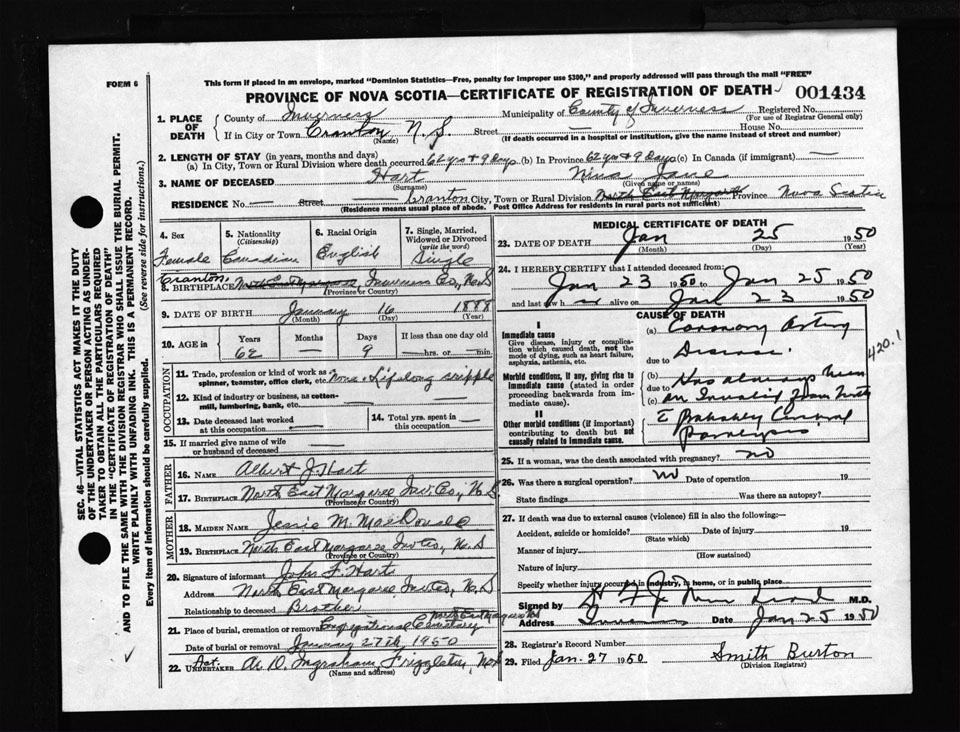 FORM 6
This form if placed in an envelope, marked "Dominion Statistics—Free, penalty for improper use $300," and properly addressed will pass through the mail "FREE"
PROVINCE OF NOVA SCOTIA—CERTIFICATE OF REGISTRATION OF DEATH 001434
SEC. 46—VITAL STATISTICS ACT MAKES IT THE DUTY
OF THE UNDERTAKER OR PERSON ACTING AS UNDER-
TAKER TO OBTAIN ALL THE PARTICULARS REQUIRED
IN THE "CERTIFICATE OF REGISTRATION OF DEATH"
AND TO FILE THE SAME WITH THE DIVISION REGISTRAR WHO SHALL ISSUE THE BURIAL PERMIT.
WRITE PLAINLY WITH UNFADING INK. THIS IS A PERMANENT RECORD.
Every item of information should be carefully supplied. (See reverse side for instructions.)
1. PLACE OF DEATH
County of Inverness Municipality of County of Inverness Registered No.
(For use of Registrar General only)
If in City or Town Cranton N. S. Street — House No.
(Name) (If death occurred in a hospital or institution, give the name instead of street and number)
2. LENGTH OF STAY (in years, months and days)
(a) In City, Town or Rural Division where death occurred 62 yrs + 9 days (b) In Province 62 yrs + 9 days (c) In Canada (if immigrant) —
3. NAME OF DECEASED Hart Nina Jane
(Surname) (Given name or names)
RESIDENCE No. — Street — Cranton City, Town or Rural Division North East Margaree Province Nova Scotia
(Residence means usual place of abode. Post Office Address for residents in rural parts not sufficient)
4. Sex
Female
5. Nationality
(Citizenship)
Canadian
6. Racial Origin
English
7. Single, Married, Widowed or Divorced
(write the word)
Single
Cranton,
8. BIRTHPLACE North East Margaree, Inverness Co., N.S
(Province or Country)
9. DATE OF BIRTH January 16 1888
(Month) (Day) (Year)
10. AGE in
Years Months Days If less than one day old
62 — 9 —hrs. or —min.
OCCUPATION
11. Trade, profession or kind of work as
spinner, teamster, office clerk, etc. None. Lifelong cripple
12. Kind of industry or business, as cotton-
mill, lumbering, bank, etc. —
13. Date deceased last worked
at this occupation —
14. Total yrs. spent in
this occupation —
15. If married give name of wife
or husband of deceased —
FATHER
16. NAME Albert J. Hart
17. BIRTHPLACE North East Margaree Inv. Co., N. S
(Province or Country)
MOTHER
18. MAIDEN NAME Jessie M. MacDonald
19. BIRTHPLACE North East Margaree, N.S
(Province or Country)
20. Signature of informant John F. Hart
Address North East Margaree, N. S
Relationship to deceased Brother
21. Place of burial, cremation or removal Congregational Cemetery North East Margaree
Date of burial or removal January 27th, 1950
22. Act. UNDERTAKER Ingraham N.S
(Name and address)
MEDICAL CERTIFICATE OF DEATH
23. DATE OF DEATH Jan 25 1950
(Month) (Day) (Year)
24. I HEREBY CERTIFY that I attended deceased from:
Jan 23 1950 to Jan 25 1950
and last saw h er alive on Jan 23 1950
CAUSE OF DEATH
I
Immediate cause
Give disease, injury or complica-
tion which caused death, not the
mode of dying, such as heart failure,
asphyxia, asthenia, etc.
(a) Coronary Artery
due to Disease.
420.1
Morbid conditions, if any, giving rise to
immediate cause (stated in order
proceeding backwards from im-
mediate cause).
(b) Has always been
due to
(c) an Invalid from
II
Other morbid conditions (if important)
contributing to death but not
causally related to immediate cause.
Paralysis
25. If a woman, was the death associated with pregnancy? no
26. Was there a surgical operation? no Date of operation 19
State findings Was there an autopsy?
27. If death was due to external causes (violence) fill in also the following:—
Accident, suicide or homicide? Date of injury 19
(State which)
Manner of injury
(How sustained)
Nature of injury
Specify whether injury occurred in industry, in home, or in public place
Signed by M.D.
Address Date Jan 25 1950
28. Registrar's Record Number
29. Filed Jan. 27 1950 Smith Burton
(Division Registrar)